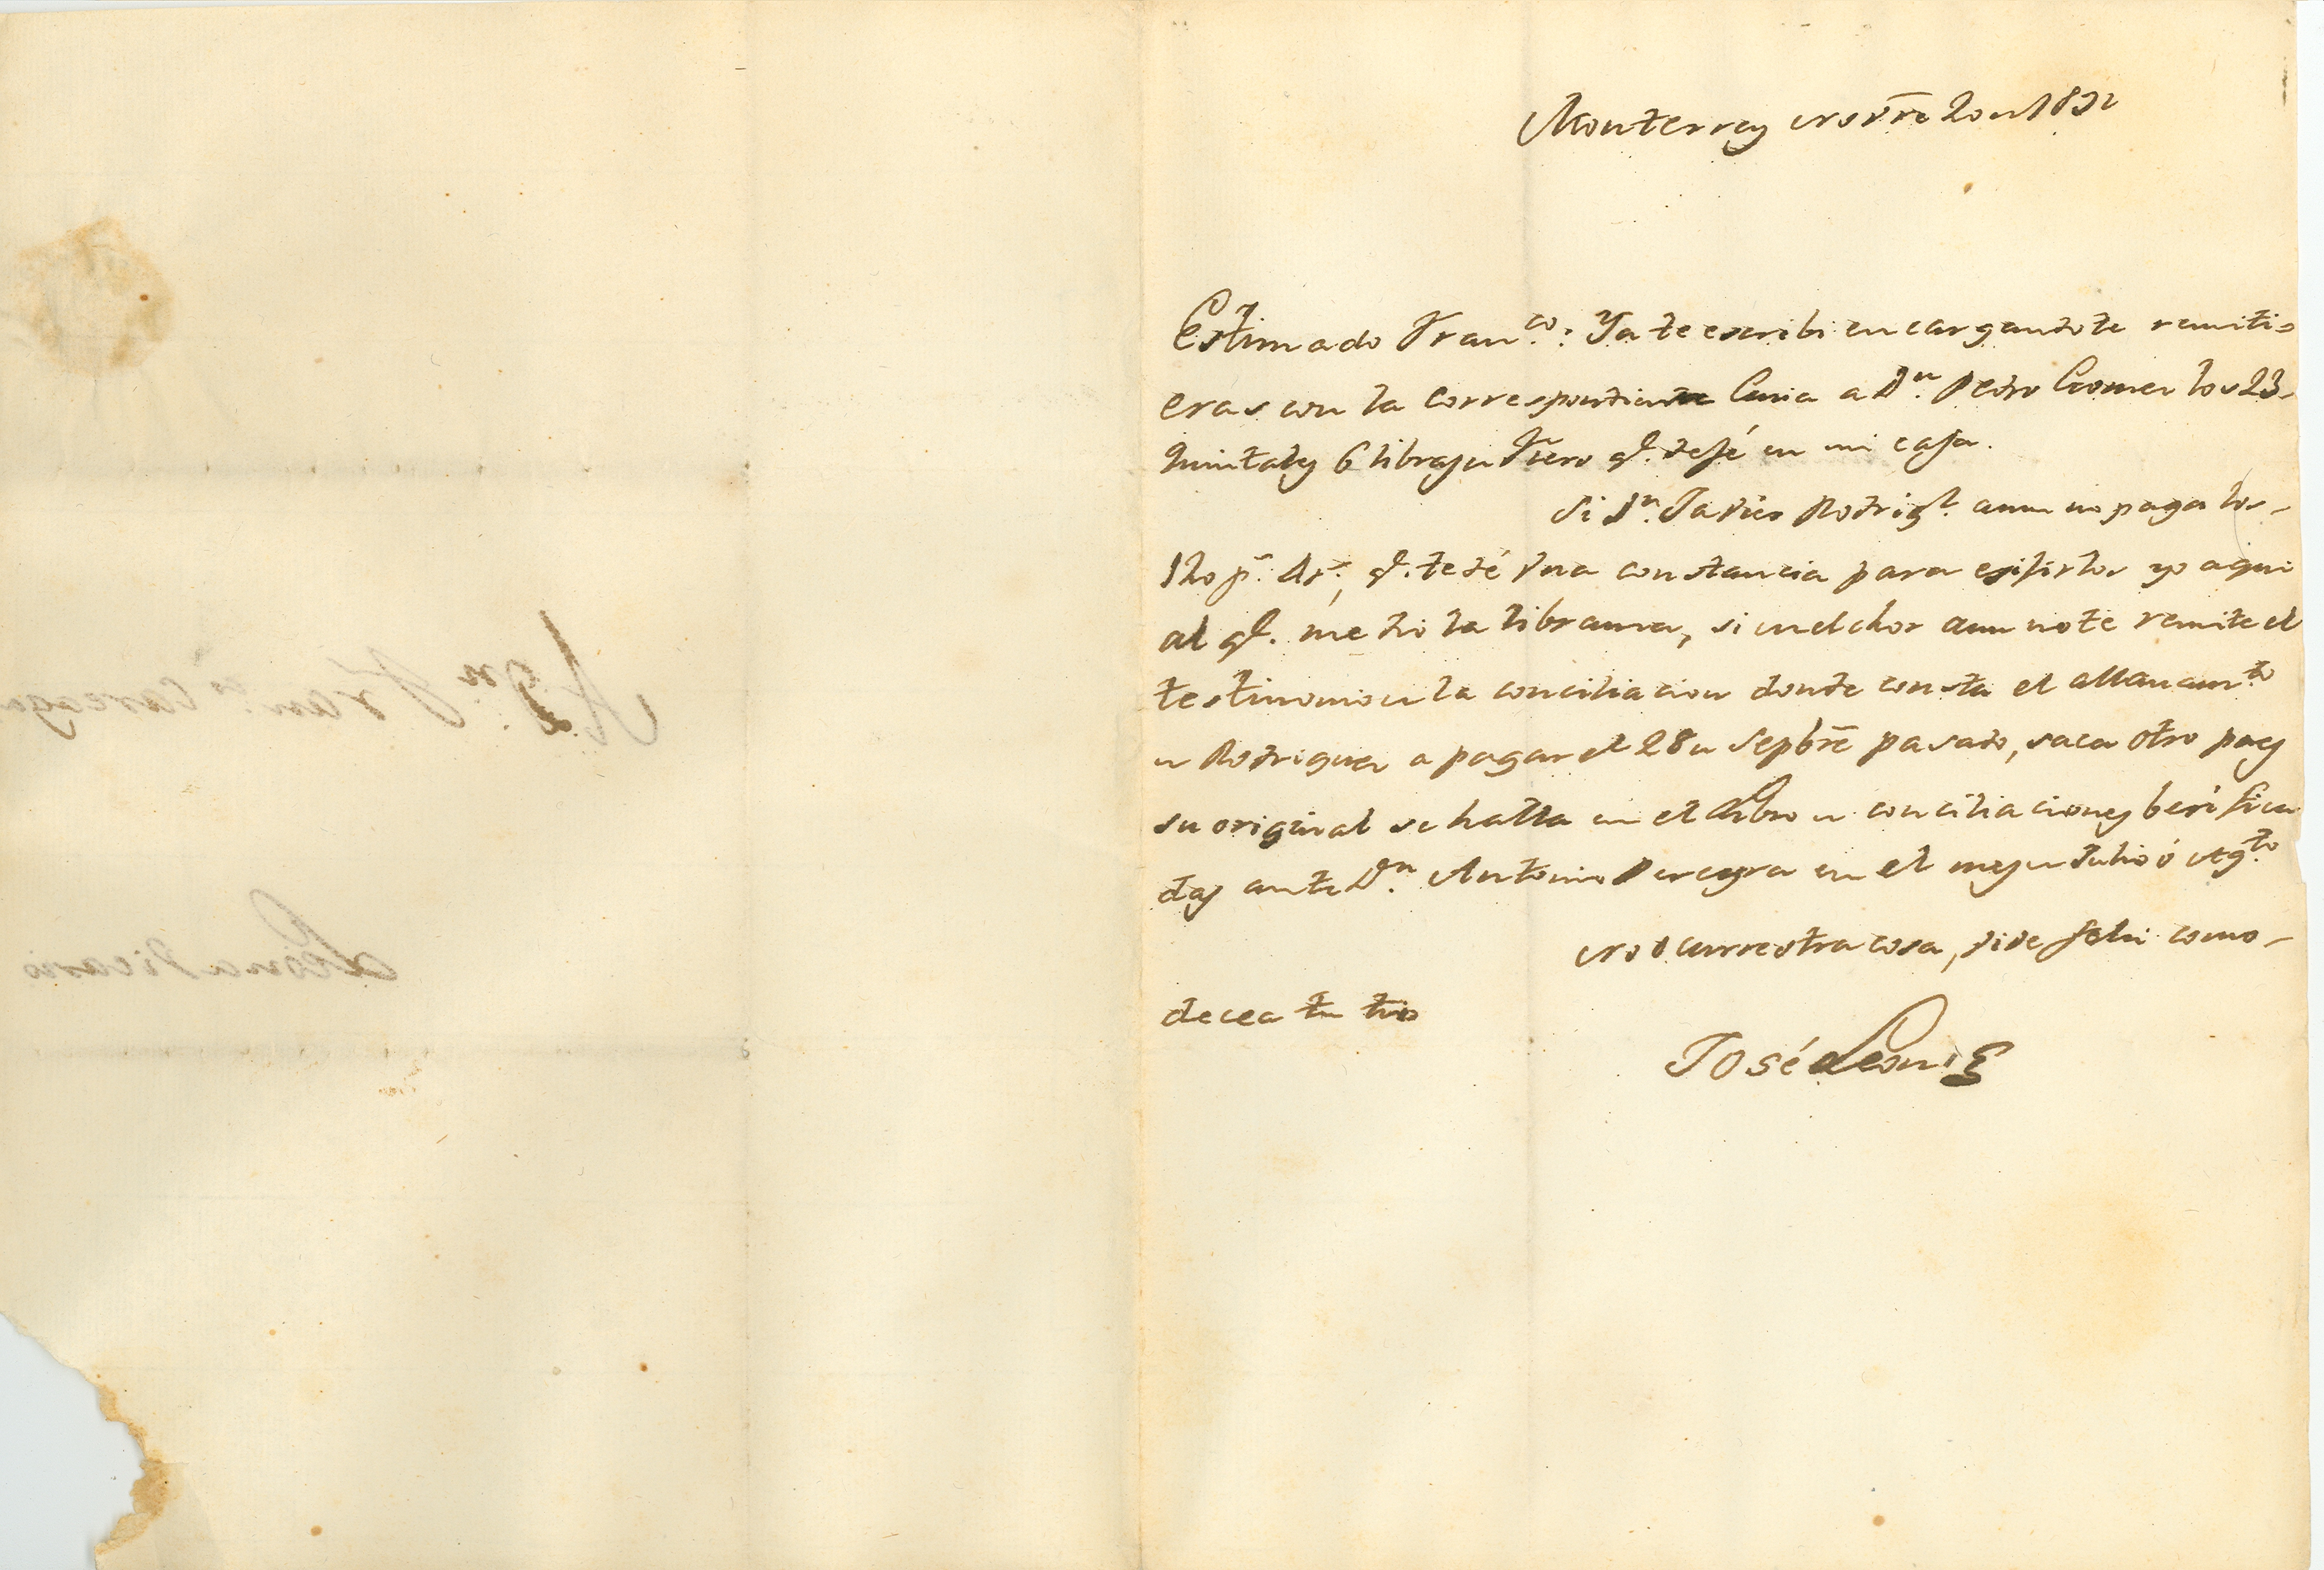 Monterrey Novre 20 de 1831
Estimado Franco: Ya te escribi encargandote remiti-
eras con la correspondiente Guia a Dn. Pedro Gomez los 23
quintales 6 libras de Fierro qe. dejé en mi casa.
Si Dn. Javier Rodrigz. aun no paga los
ps. qe. te dé una constancia para exijirlos yo aqui
al qe. me dio la libranza, si Melchor aun no te remite el
testimonio de la conciliacion donde consta el allanamto
de Rodriguez a pagar el 28 de Sepbre pasado, saca otro pues
su original se halla en el Libro de conciliaciones berifica
das ante Dn. Antonio Pereyra en el mes de Julio ó Agto.
No ocurre otra cosa, vive feliz como
decea tu tio
José Leoni
A Dn. Franco. Careaga
Leona Vicario